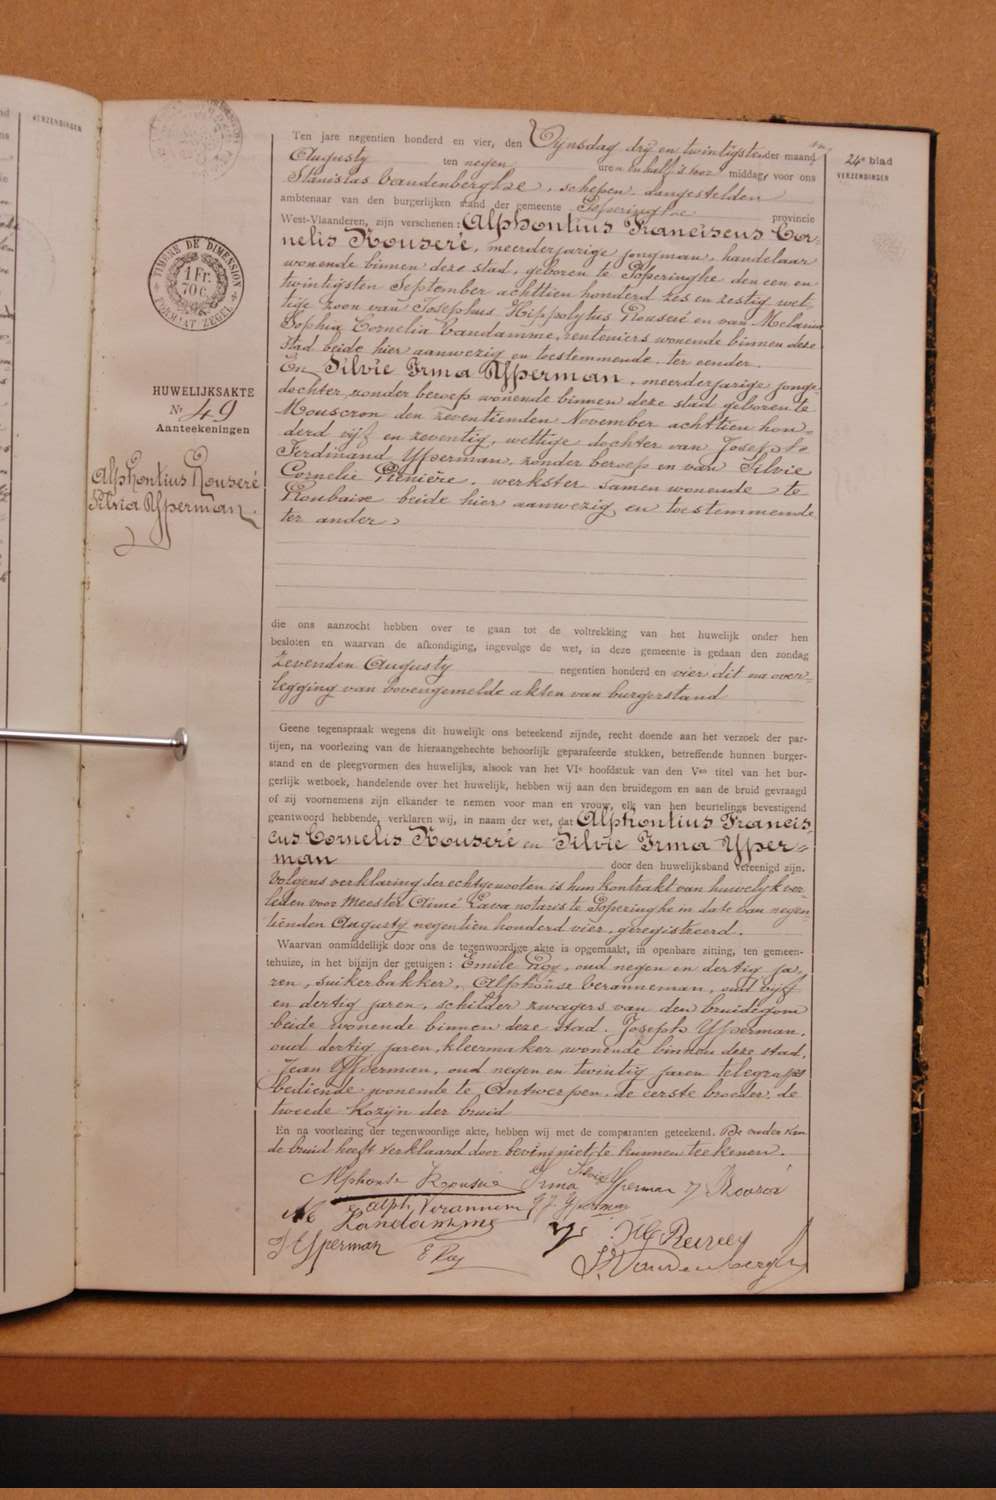 VERZENDINGEN
24e blad
VERZENDINGEN
TIMBRE DE DIMENSION
1 Fr.
70 c.
FORMAAT ZEGEL
HUWELIJKSAKTE
No 49
Aanteekeningen
Alphontius Rouseré
Silvia Ysperman
Ten jare negentien honderd en vier, den Dijnsdag dry en twintigsten der maand
Augusty ten negen uren en half 's voor middags voor ons
Stanislas Vandenberghe, schepen-dangestelden
ambtenaar van den burgerlijken stand der gemeente Poperinghe provincie
West-Vlaanderen, zijn verschenen : Alphontius Franciscus Cor-
nelis Rouseré, meerderjarige jongman, handelaar
wonende binnen deze stad, geboren te Poperinghe den een en
twintigsten September achttien honderd zes en zestig wet-
tige zoon van Josephus Hippolytus Rouseré en van Melania
Sophia Cornelia Vandamme, renteniers wonende binnen deze
stad beide hier aanwezig en toestemmende, ter eender.
En Silvie Irma Ysperman, meerderjarige jonge-
dochter, zonder beroep wonende binnen deze stad geboren te
Mouscron den zeventienden November achttien hon-
derd vijf en zeventig, wettige dochter van Joseph
Ferdinand Ysperman, zonder beroep en van Silvie
Cornelie Plenière, werkster samen wonende te
Roubaix beide hier aanwezig en toestemmende
ter ander.
die ons aanzocht hebben over te gaan tot de voltrekking van het huwelijk onder hen
besloten en waarvan de afkondiging, ingevolge de wet, in deze gemeente is gedaan den zondag
zevenden Augusty negentien honderd en vier dit na over-
legging van bovengemelde akten van burgerstand
Geene tegenspraak wegens dit huwelijk ons beteekend zijnde, recht doende aan het verzoek der par-
tijen, na voorlezing van de hieraangehechte behoorlijk geparafeerde stukken, betreffende hunnen burger-
stand en de pleegvormen des huwelijks, alsook van het VIe hoofdstuk van den Ven titel van het bur-
gerlijk wetboek, handelende over het huwelijk, hebben wij aan den bruidegom en aan de bruid gevraagd
of zij voornemens zijn elkander te nemen voor man en vrouw, elk van hen beurtelings bevestigend
geantwoord hebbende, verklaren wij, in naam der wet, dat Alphontius Francis-
cus Cornelis Rouseré en Silvie Irma Ysper-
man door den huwelijksband vereenigd zijn.
Volgens verklaring der echtgenooten is hun kontrakt van huwelyk ver-
leden voor Meester Aimé Lava notaris te Poperinghe in date van negen-
tienden Augusty negentien honderd vier, geregistreerd.
Waarvan onmiddellijk door ons de tegenwoordige akte is opgemaakt, in openbare zitting, ten gemeen-
tehuize, in het bijzijn der getuigen : Emile Roy, oud negen en dertig ja-
ren, suikerbakker, Alphonse Veranneman, oud vijf
en dertig jaren, schilder zwagers van den bruidegom
beide wonende binnen deze stad. Joseph Ysperman,
oud dertig jaren, kleermaker wonende binnen deze stad,
Jean Ysperman, oud negen en twintig jaren telegraph
bediende wonende te Antwerpen, de eerste broeder, de
tweede kozijn der bruid
En na voorlezing der tegenwoordige akte, hebben wij met de comparanten geteekend. De ouders van
de bruid heeft verklaard door beving niet te kunnen teekenen.
Alphonse Rouseré Irma Silvie Ysperman
Alph. Veranneman J. J. Ysperman
Vandamme
J Ysperman E Roy
S. Vandenberghe